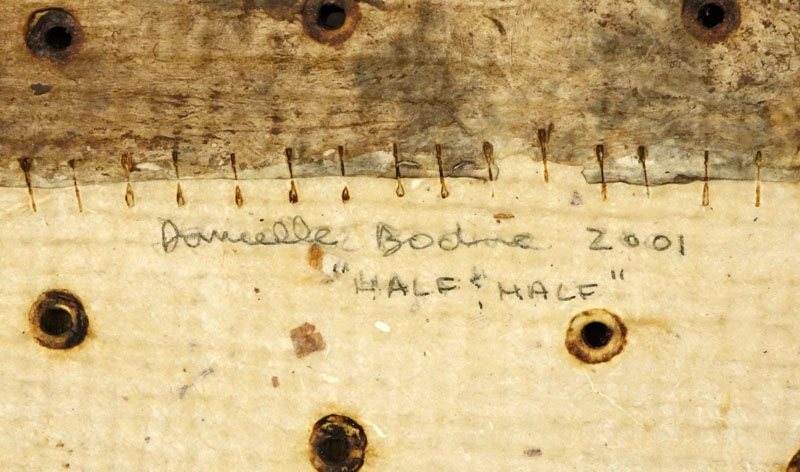 Danielle Bodine 2001
"HALF & HALF"